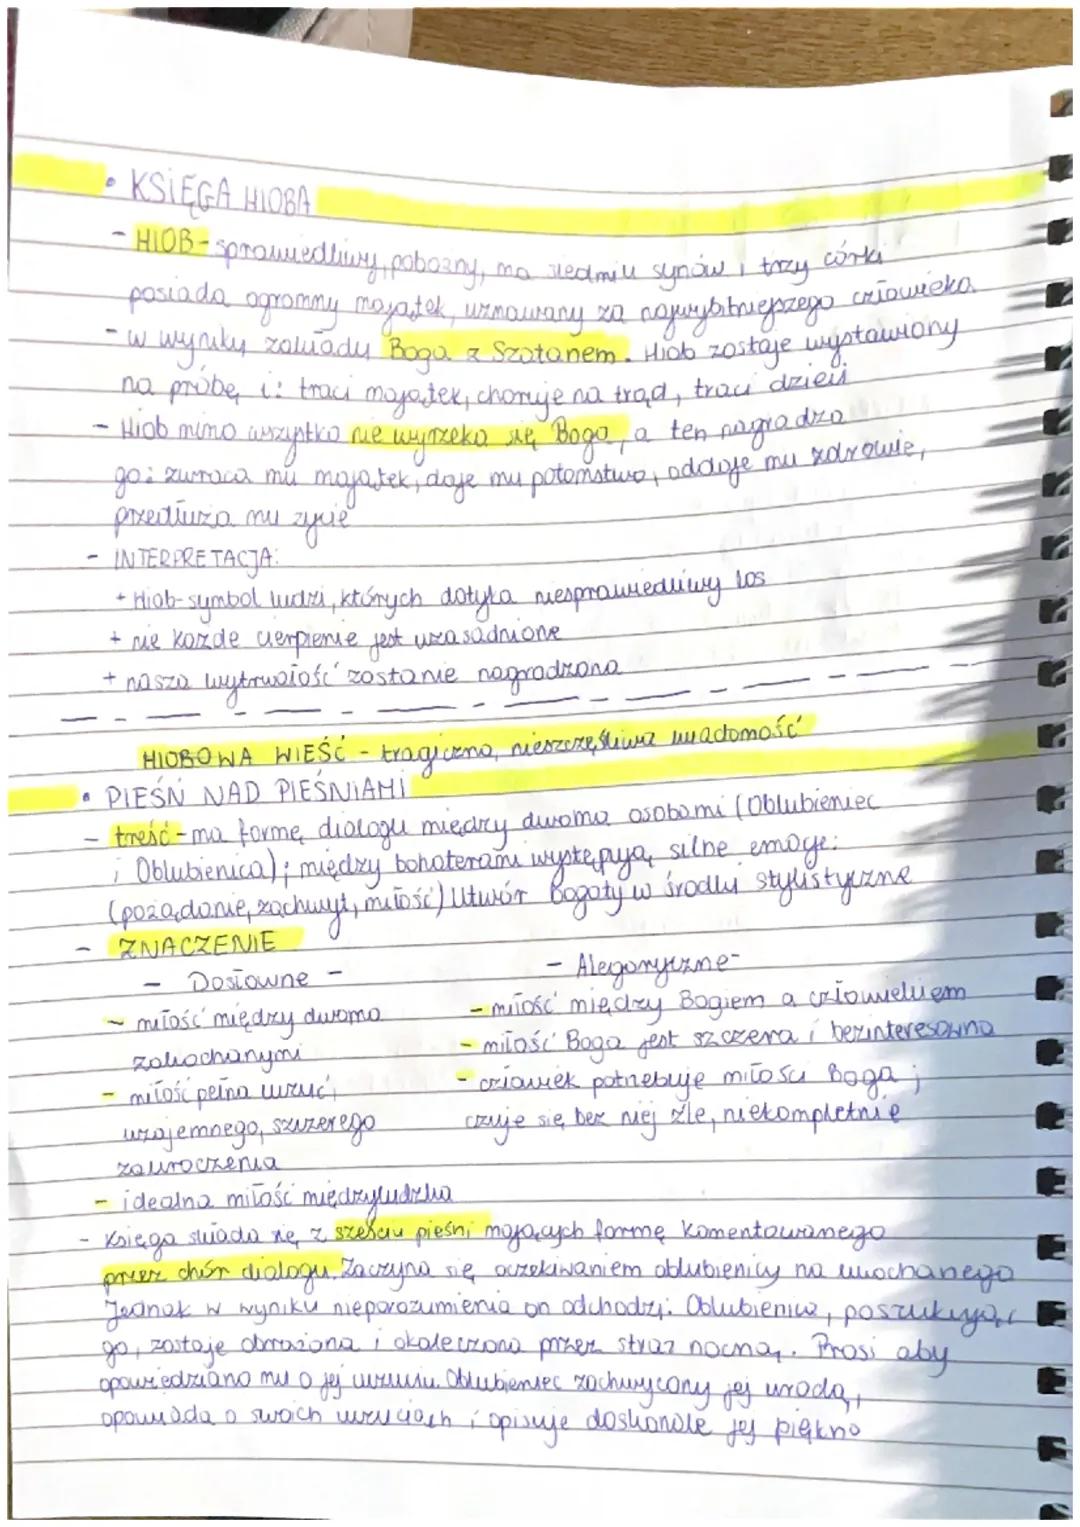 • KSIĘGA HIOBA
- HIOB - sprawiedliwy, pobożny, ma siedmiu synów i trzy córki
posiada ogromny majątek, uznawany za najwybitniejszego człowieka
- w wyniku zakładu Boga z Szatanem. Hiob zostaje wystawiony
na próbę i: traci majątek, choruje na trąd, traci dzieci
- Hiob mimo wszystko nie wyrzeka się Boga, a ten nagradza
go: zwraca mu majątek, daje mu potomstwo, oddaje mu zdrowie,
przedłuża mu życie
- INTERPRETACJA:
+ Hiob - symbol ludzi, których dotyka niesprawiedliwy los
+ nie każde cierpienie jest uzasadnione
+ nasza wytrwałość zostanie nagrodzona
HIOBOWA WIEŚĆ - tragiczna, nieszczęśliwa wiadomość
• PIEŚŃ NAD PIEŚNIAMI
- treść - ma formę dialogu między dwoma osobami (Oblubieniec
i Oblubienica); między bohaterami występują silne emocje:
(pożądanie, zachwyt, miłość) Utwór Bogaty w środki stylistyczne
- ZNACZENIE
- Dosłowne - - Alegoryczne -
- miłość między dwoma - miłość między Bogiem a człowiekiem
zakochanymi - miłość Boga jest szczera i bezinteresowna
- miłość pełna uczuć, - człowiek potrzebuje miłości Boga;
wzajemnego, szczerego czuje się bez niej źle, niekompletnie
zauroczenia
- idealna miłość międzyludzka
- Księga składa się z sześciu pieśni mających formę komentowanego
przez chór dialogu. Zaczyna się oczekiwaniem oblubienicy na ukochanego
Jednak w wyniku nieporozumienia on odchodzi. Oblubienica, poszukując
go, zostaje obrażona i okaleczona przez straż nocną. Prosi aby
opowiedziano mu o jej uczuciu. Oblubieniec zachwycony jej urodą,
opowiada o swoich uczuciach i opisuje doskonale jej piękno